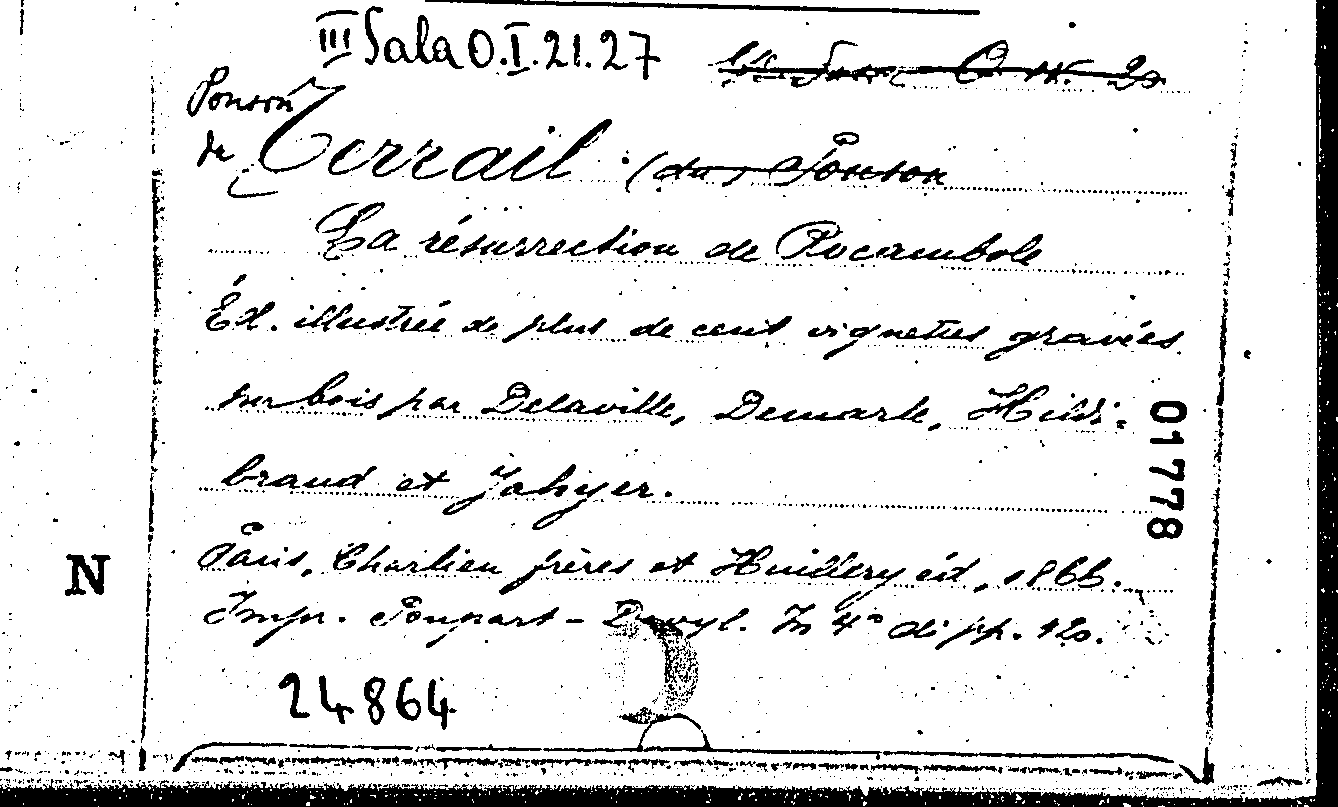 III Sala O.I.21.27
Ponson
du Terrail (du) Ponson
La résurrection de Rocambole
Éd. illustrée de plus de cent vignettes gravées
sur bois par Delaville, Demarle, Hildi-
brand et Jahyer.
Paris, Charlieu frères et Huillery éd, 1866.
Impr. Poupart-Davyl. In 4° di pp. 120.
24864
01778
N